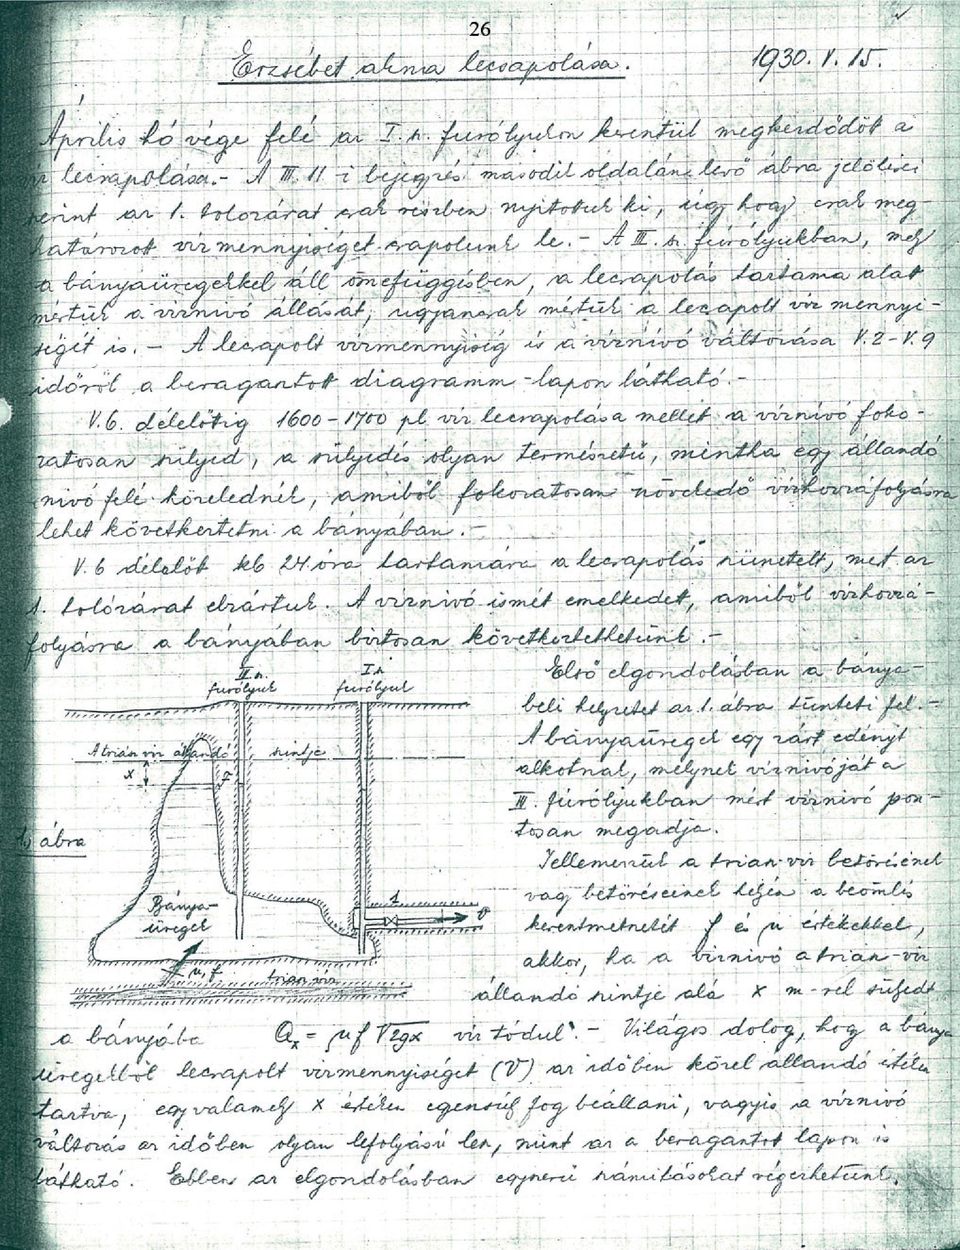 26
Erzsébet akna lecsapolása. 1930. V. 15.
Április hó vége felé az I. sz. furólyukon keresztül megkezdődött a
víz lecsapolása. - A III. 11-i bejegyzés második oldalán levő ábra jelölései
szerint az 1. tolózárat csak részben nyitottuk ki, úgy hogy csak meg-
határozott vízmennyiséget csapolunk le. - A II. sz. fúrólyukban, mely
a bányaüregekkel áll összefüggésben, a lecsapolás tartama alatt
mértük a víznívó állását, ugyancsak mértük a lecsapolt víz mennyi-
ségét is. - A lecsapolt vízmennyiség és a víznívó változása V.2-V.9
időről a beragasztott diagramm-lapon látható. -
V.6. délelőttig 1600-1700 pl víz lecsapolása mellett a víznívó foko-
zatosan sülyed, a sülyedés olyan természetű, mintha egy állandó
nívó felé közelednék, amiből fokozatosan növekedő vízhozzáfolyásra
lehet következtetni a bányában. -
V.6 délelőtt kb 24 óra tartamára a lecsapolás szünetelt, mert az
1. tolózárat elzártuk. A víznívó ismét emelkedett, amiből vízhozzá-
folyásra a bányában biztosan következtethetünk. -
II sz. furólyuk
I. sz furólyuk
A triász víz állandó szintje
x
1. ábra
Bánya-
üregek
1
v
u, f
triász víz
Első elgondolásban a bánya-
beli helyzetet az 1. ábra tünteti fel. -
A bányaüregek egy zárt edényt
alkotnak, melynek víznívóját a
II. fúrólyukban mért víznívó pon-
tosan megadja.
Jellemezzük a triász-víz betörésének
vagy betöréseinek helyén a beömlés
keresztmetszetét f és μ értékekkel,
akkor, ha a víznívó a triász-víz
állandó szintje alá x m-rel süllyedt
a bányába Qx = μf √2gx víz tódul. - Világos dolog, hogy a bánya-
üregekből lecsapolt vízmennyiséget (V) az időben közel állandó értéken
tartva, egy valamely x értéken egensúly fog beállani, vagyis a víznívó
változás az időben olyan lefolyású lesz, mint az a beragasztott lapon is
látható. Ebben az elgondolásban egyszerű számításokat végezhetünk.